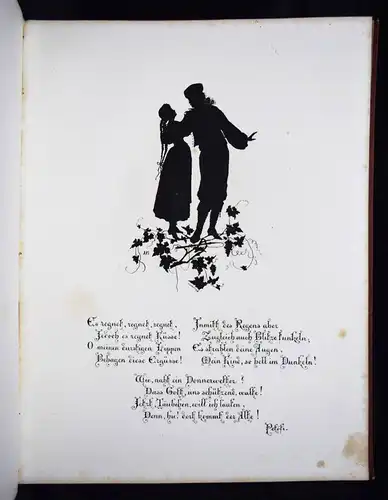 Es regnet, regnet, regnet,
Jedoch es regnet Küsse!
O meinen durstigen Lippen
Behagen diese Ergüsse!
Inmitt des Regens aber
Zugleich auch Blitze funkeln,
Es strahlen deine Augen,
Mein Kind, so hell im Dunkeln!
Wie, naht ein Donnerwetter?
Dass Gott uns schützend walte!
Jetzt, Täubchen, will ich laufen,
Denn, hu! dort kommt der Alte!
Petöfi.